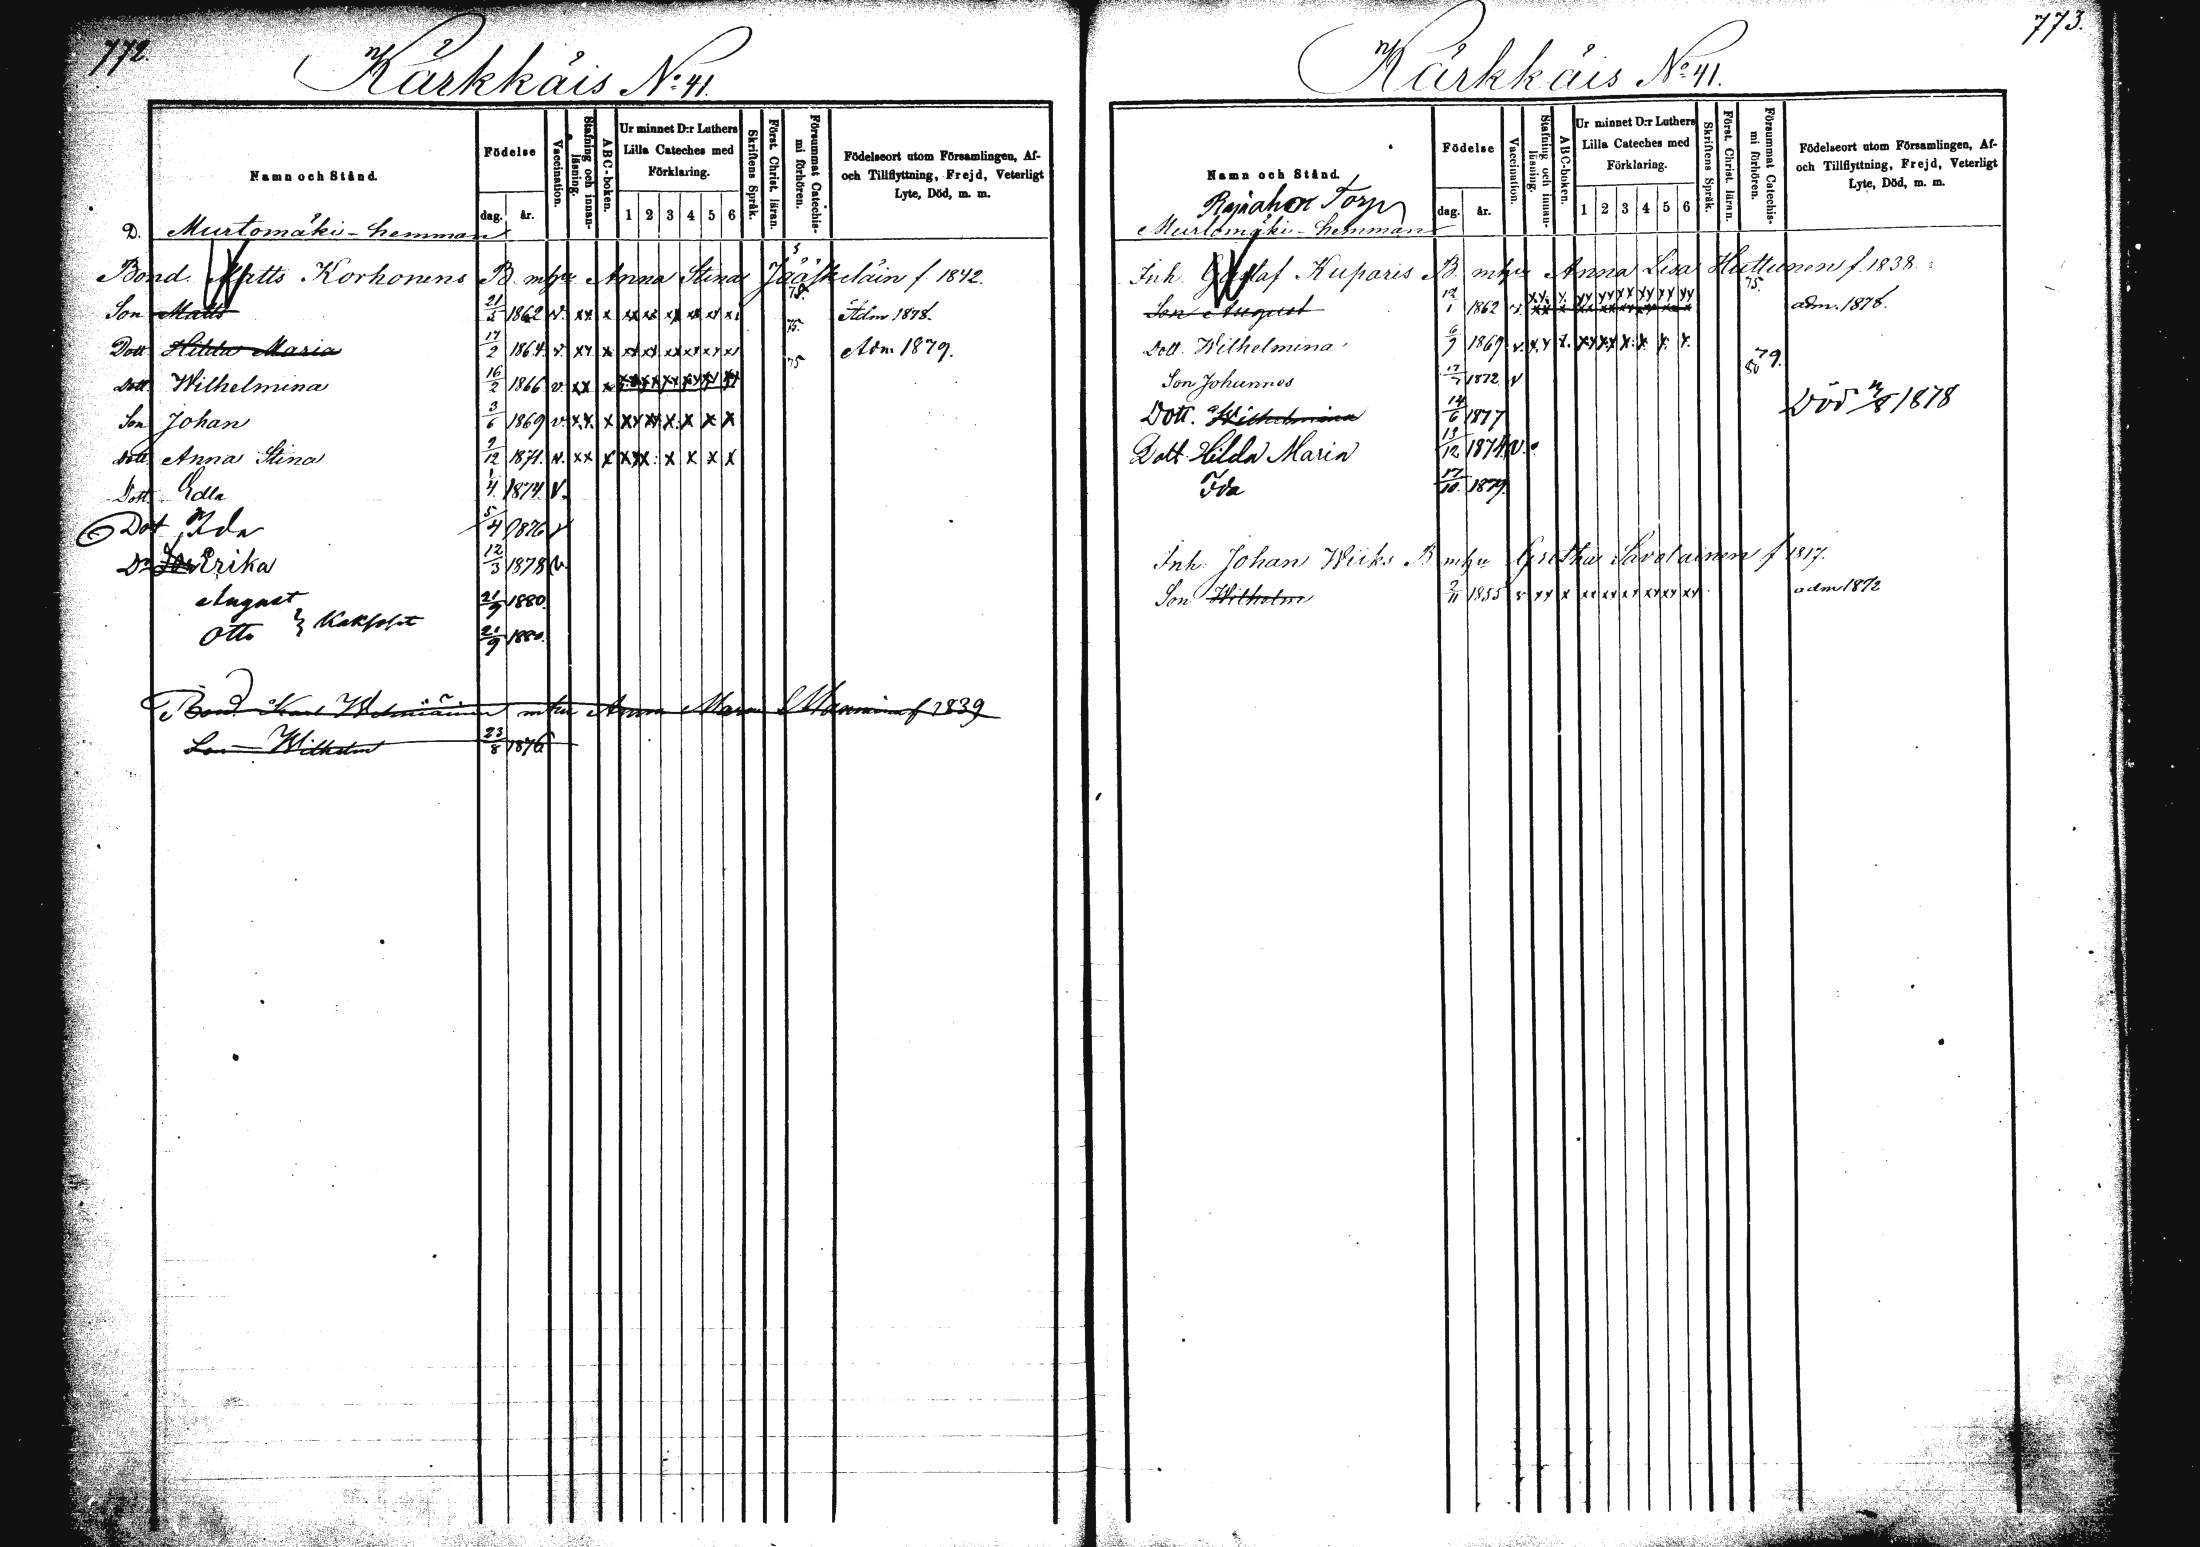 772.
Kärkkäis No 41.
Namn och Stånd.
Födelse
dag.
år.
Vaccination.
Stafning och innan-
läsning.
ABC-boken.
Ur minnet D:r Luthers
Lilla Cateches med
Förklaring.
1 2 3 4 5 6
Skriftens Språk.
Först. Christ. läran.
Försummat Catechis-
mi förhören.
Födelseort utom Församlingen, Af-
och Tillflyttning, Frejd, Veterligt
Lyte, Död, m. m.
D. Murtomäki-hemman
Bond. Matts Korhonens B. mhu Anna Stina Jääskeläin f. 1842.
Son Matts 21/5 1862 v. xx x xx xx xx xx xx x. 78. Adm 1878.
Dott Hilda Maria 17/2 1864 v. xx x xx xx xx xx xx xx 75. Adm 1879.
Dott Wilhelmina 16/2 1866 v. xx x xx xx xx xx xx xx 75
Son Johan 3/6 1869 v. xx x xx xx x x x x
Dott Anna Stina 2/12 1871. v. xx x xx x x x x x
Dott. Edla 1/4 1874 v.
Dot Ida 5/4 1876 v
Dr Erika 12/3 1878 v.
August 21/9 1880.
Otto 21/9 1880.
Bond. Karl mhu Anna Maria f 1839
Son Wilhelm 23/8 1876
773.
Kärkkäis No 41.
Namn och Stånd.
Födelse
dag.
år.
Vaccination.
Stafning och innan-
läsning.
ABC-boken.
Ur minnet D:r Luthers
Lilla Cateches med
Förklaring.
1 2 3 4 5 6
Skriftens Språk.
Först. Christ. läran.
Försummat Catechis-
mi förhören.
Födelseort utom Församlingen, Af-
och Tillflyttning, Frejd, Veterligt
Lyte, Död, m. m.
Rajaaho Torp
Murtomäki-hemman
Inh. Gustaf Kuparis B. mhu Anna Lisa Huttunen f. 1838.
Son August 12/1 1862 v. xx x xx xx xx xx xx xx 75. adm. 1878.
Dott. Wilhelmina 6/9 1869 v. x x x. xx xx x. x. x. x.
Son Johannes 17/7 1872 v 79.
Dott. Wilhelmina 14/6 1877 Död 1878
Dott. Hilda Maria 13/12 1874. v.
Ida 17/10. 1879.
Inh. Johan Wiiks B mhu Gretha Savolainen f 1817.
Son Wilhelm 2/11 1855 v xx x xx xx xx xx xx xx adm 1872